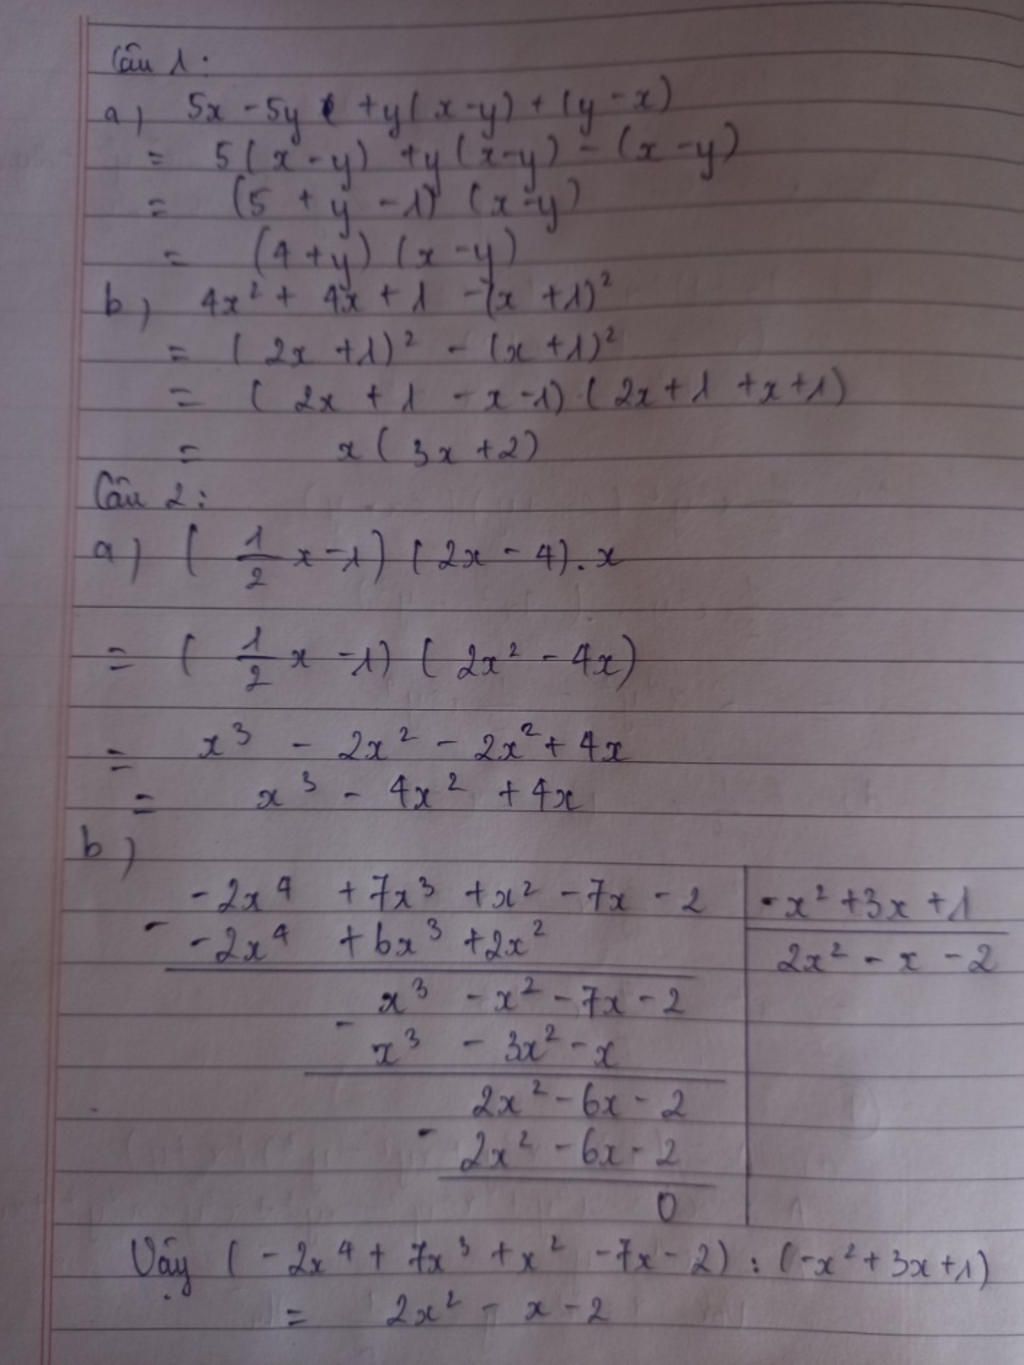 Câu 1:
a) 5x - 5y + y(x-y) + (y-x)
= 5(x-y) + y(x-y) - (x-y)
= (5 + y - 1) (x-y)
= (4+y) (x-y)
b) 4x² + 4x + 1 - (x+1)²
= (2x+1)² - (x+1)²
= (2x + 1 - x-1).(2x+1 +x+1)
= x(3x+2)
Câu 2:
a) (1/2 x-1) (2x-4).x
= (1/2 x-1) (2x² - 4x)
= x³ - 2x² - 2x² + 4x
= x³ - 4x² + 4x
b)
-2x⁴ + 7x³ + x² - 7x - 2 | -x² + 3x + 1
- -2x⁴ + 6x³ + 2x² | 2x² - x - 2
x³ - x² - 7x - 2
- x³ - 3x² - x
2x² - 6x - 2
- 2x² - 6x - 2
0
Vậy (-2x⁴ + 7x³ + x² - 7x - 2) : (-x² + 3x + 1)
= 2x² - x - 2